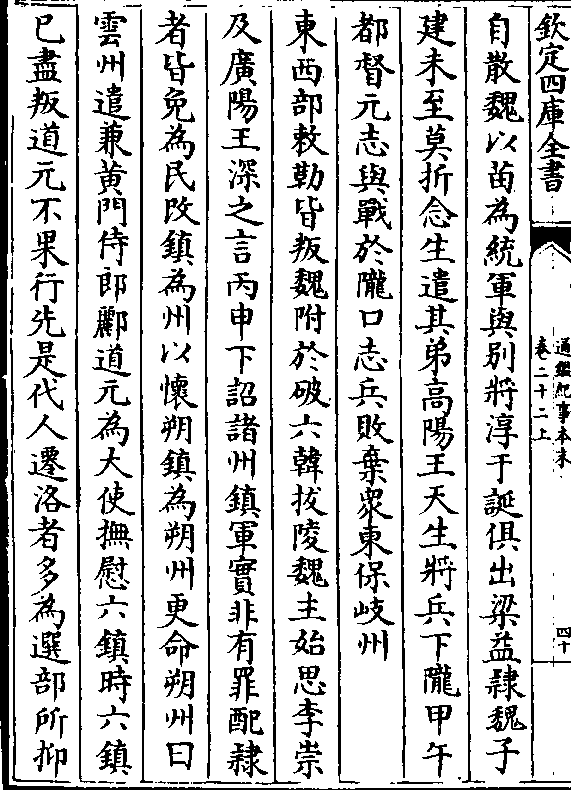 欽定四庫全書
通鑑紀事本末
卷二十二上
四十
自散魏以苗為統軍與别將淳于誕俱出梁益隸魏子
建未至莫折念生遣其弟高陽王天生將兵下隴甲午
都督元志與戰於隴口志兵敗棄衆東保岐州
東西部敕勒皆叛魏附於破六韓拔陵魏主始思李崇
及廣陽王深之言丙申下詔諸州鎮軍實非有罪配隸
者皆免為民改鎮為州以懷朔鎮為朔州更命朔州曰
雲州遣兼黄門侍郎酈道元為大使撫慰六鎮時六鎮
已盡叛道元不果行先是代人遷洛者多為選部所抑